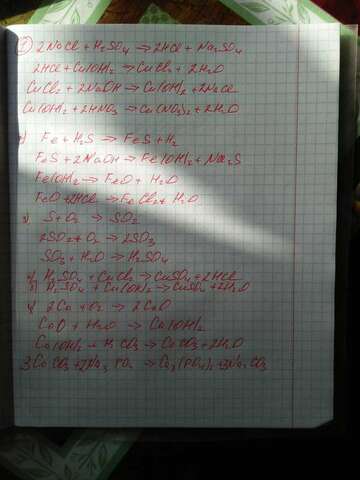 1) 2NaCl + H2SO4 → 2HCl + Na2SO4
2HCl + Cu(OH)2 → CuCl2 + 2H2O
CuCl2 + 2NaOH → Cu(OH)2 + 2NaCl
Cu(OH)2 + 2HNO3 → Cu(NO3)2 + 2H2O
2) Fe + H2S → FeS + H2
FeS + 2NaOH → Fe(OH)2 + Na2S
Fe(OH)2 → FeO + H2O
FeO + 2HCl → FeCl2 + H2O
3) S + O2 → SO2
2SO2 + O2 → 2SO3
SO3 + H2O → H2SO4
H2SO4 + CuCl2 → CuSO4 + 2HCl
H2SO4 + Cu(OH)2 → CuSO4 + 2H2O
4) 2Ca + O2 → 2CaO
CaO + H2O → Ca(OH)2
Ca(OH)2 + H2CO3 → CaCO3 + 2H2O
3CaCO3 + 2Na3PO4 → Ca3(PO4)2 + 3Na2CO3